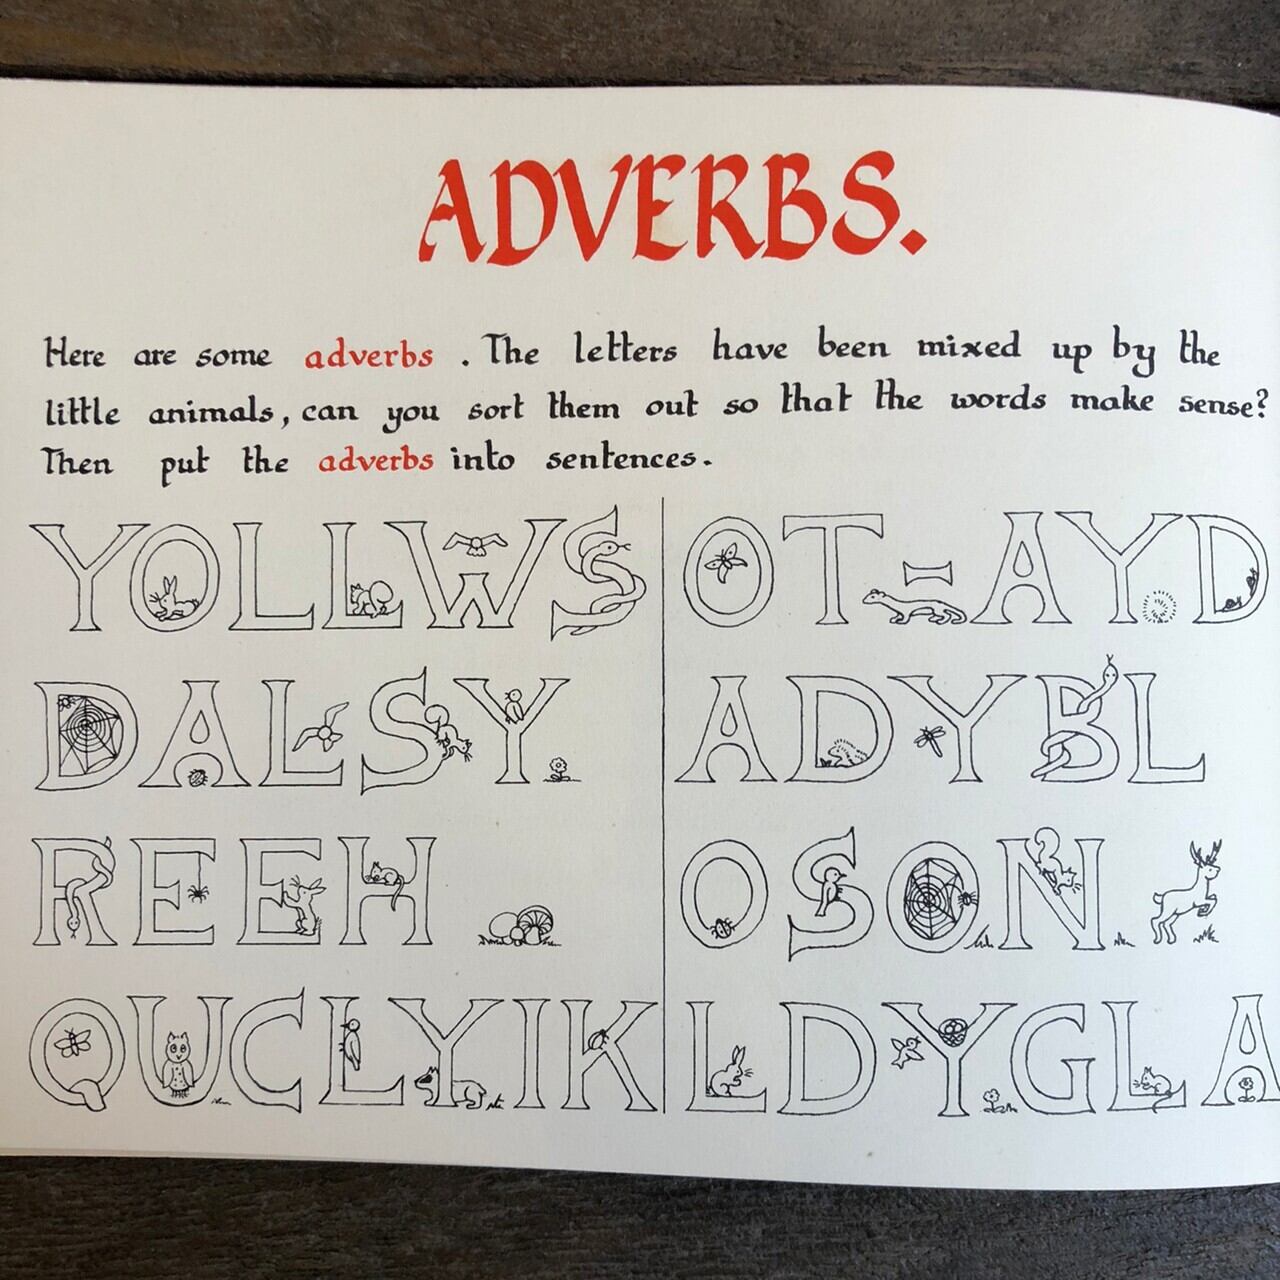 ADVERBS.
Here are some adverbs. The letters have been mixed up by the
little animals, can you sort them out so that the words make sense?
Then put the adverbs into sentences.
YOLLWS
OT-AYD
DALSY
ADYBL
REEH
OSON
QUCLYIK
LDYGLA